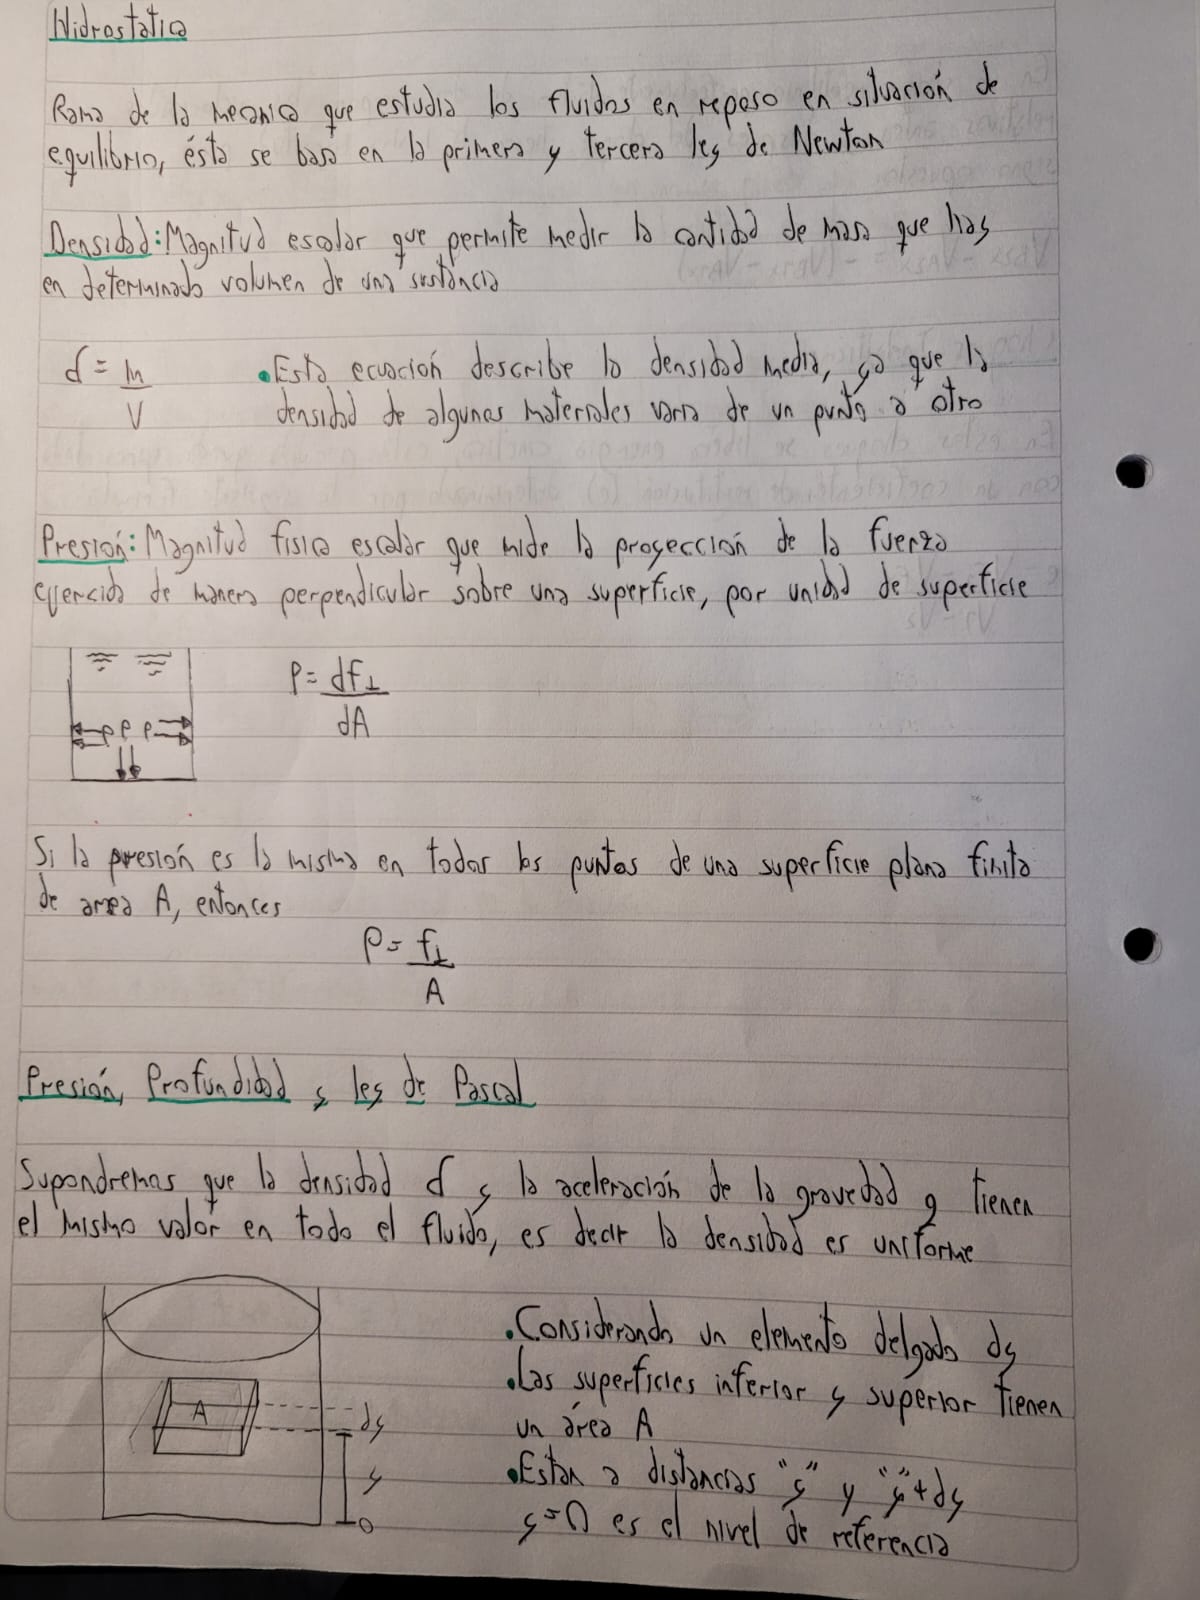 Hidrostatica
Rama de la mecanica que estudia los fluidos en reposo en situación de
equilibrio, ésta se basa en la primera y tercera ley de Newton
Densidad: Magnitud escalar que permite medir la cantidad de masa que hay
en determinado volumen de una sustancia
d = m
V
• Esta ecuación describe la densidad media, ya que la
densidad de algunos materiales varia de un punto a otro
Presión: Magnitud fisica escalar que mide la proyección de la fuerza
ejercida de manera perpendicular sobre una superficie, por unidad de superficie
P P P
P = df⊥
dA
Si la presión es la misma en todos los puntos de una superficie plana finita
de area A, entonces
P = f⊥
A
Presión, Profundidad y ley de Pascal
Supondremos que la densidad d y la aceleración de la gravedad g tienen
el mismo valor en todo el fluido, es decir la densidad es uniforme
• Considerando un elemento delgado dy
• Las superficies inferior y superior tienen
un área A
• Estan a distancias "y" y "y"+dy
y=0 es el nivel de referencia
A
dy
y
0